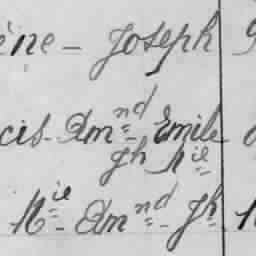 ène - Joseph
cis- Am^nd Emile
Jh M^ie
M^ie- Am^nd- Jh